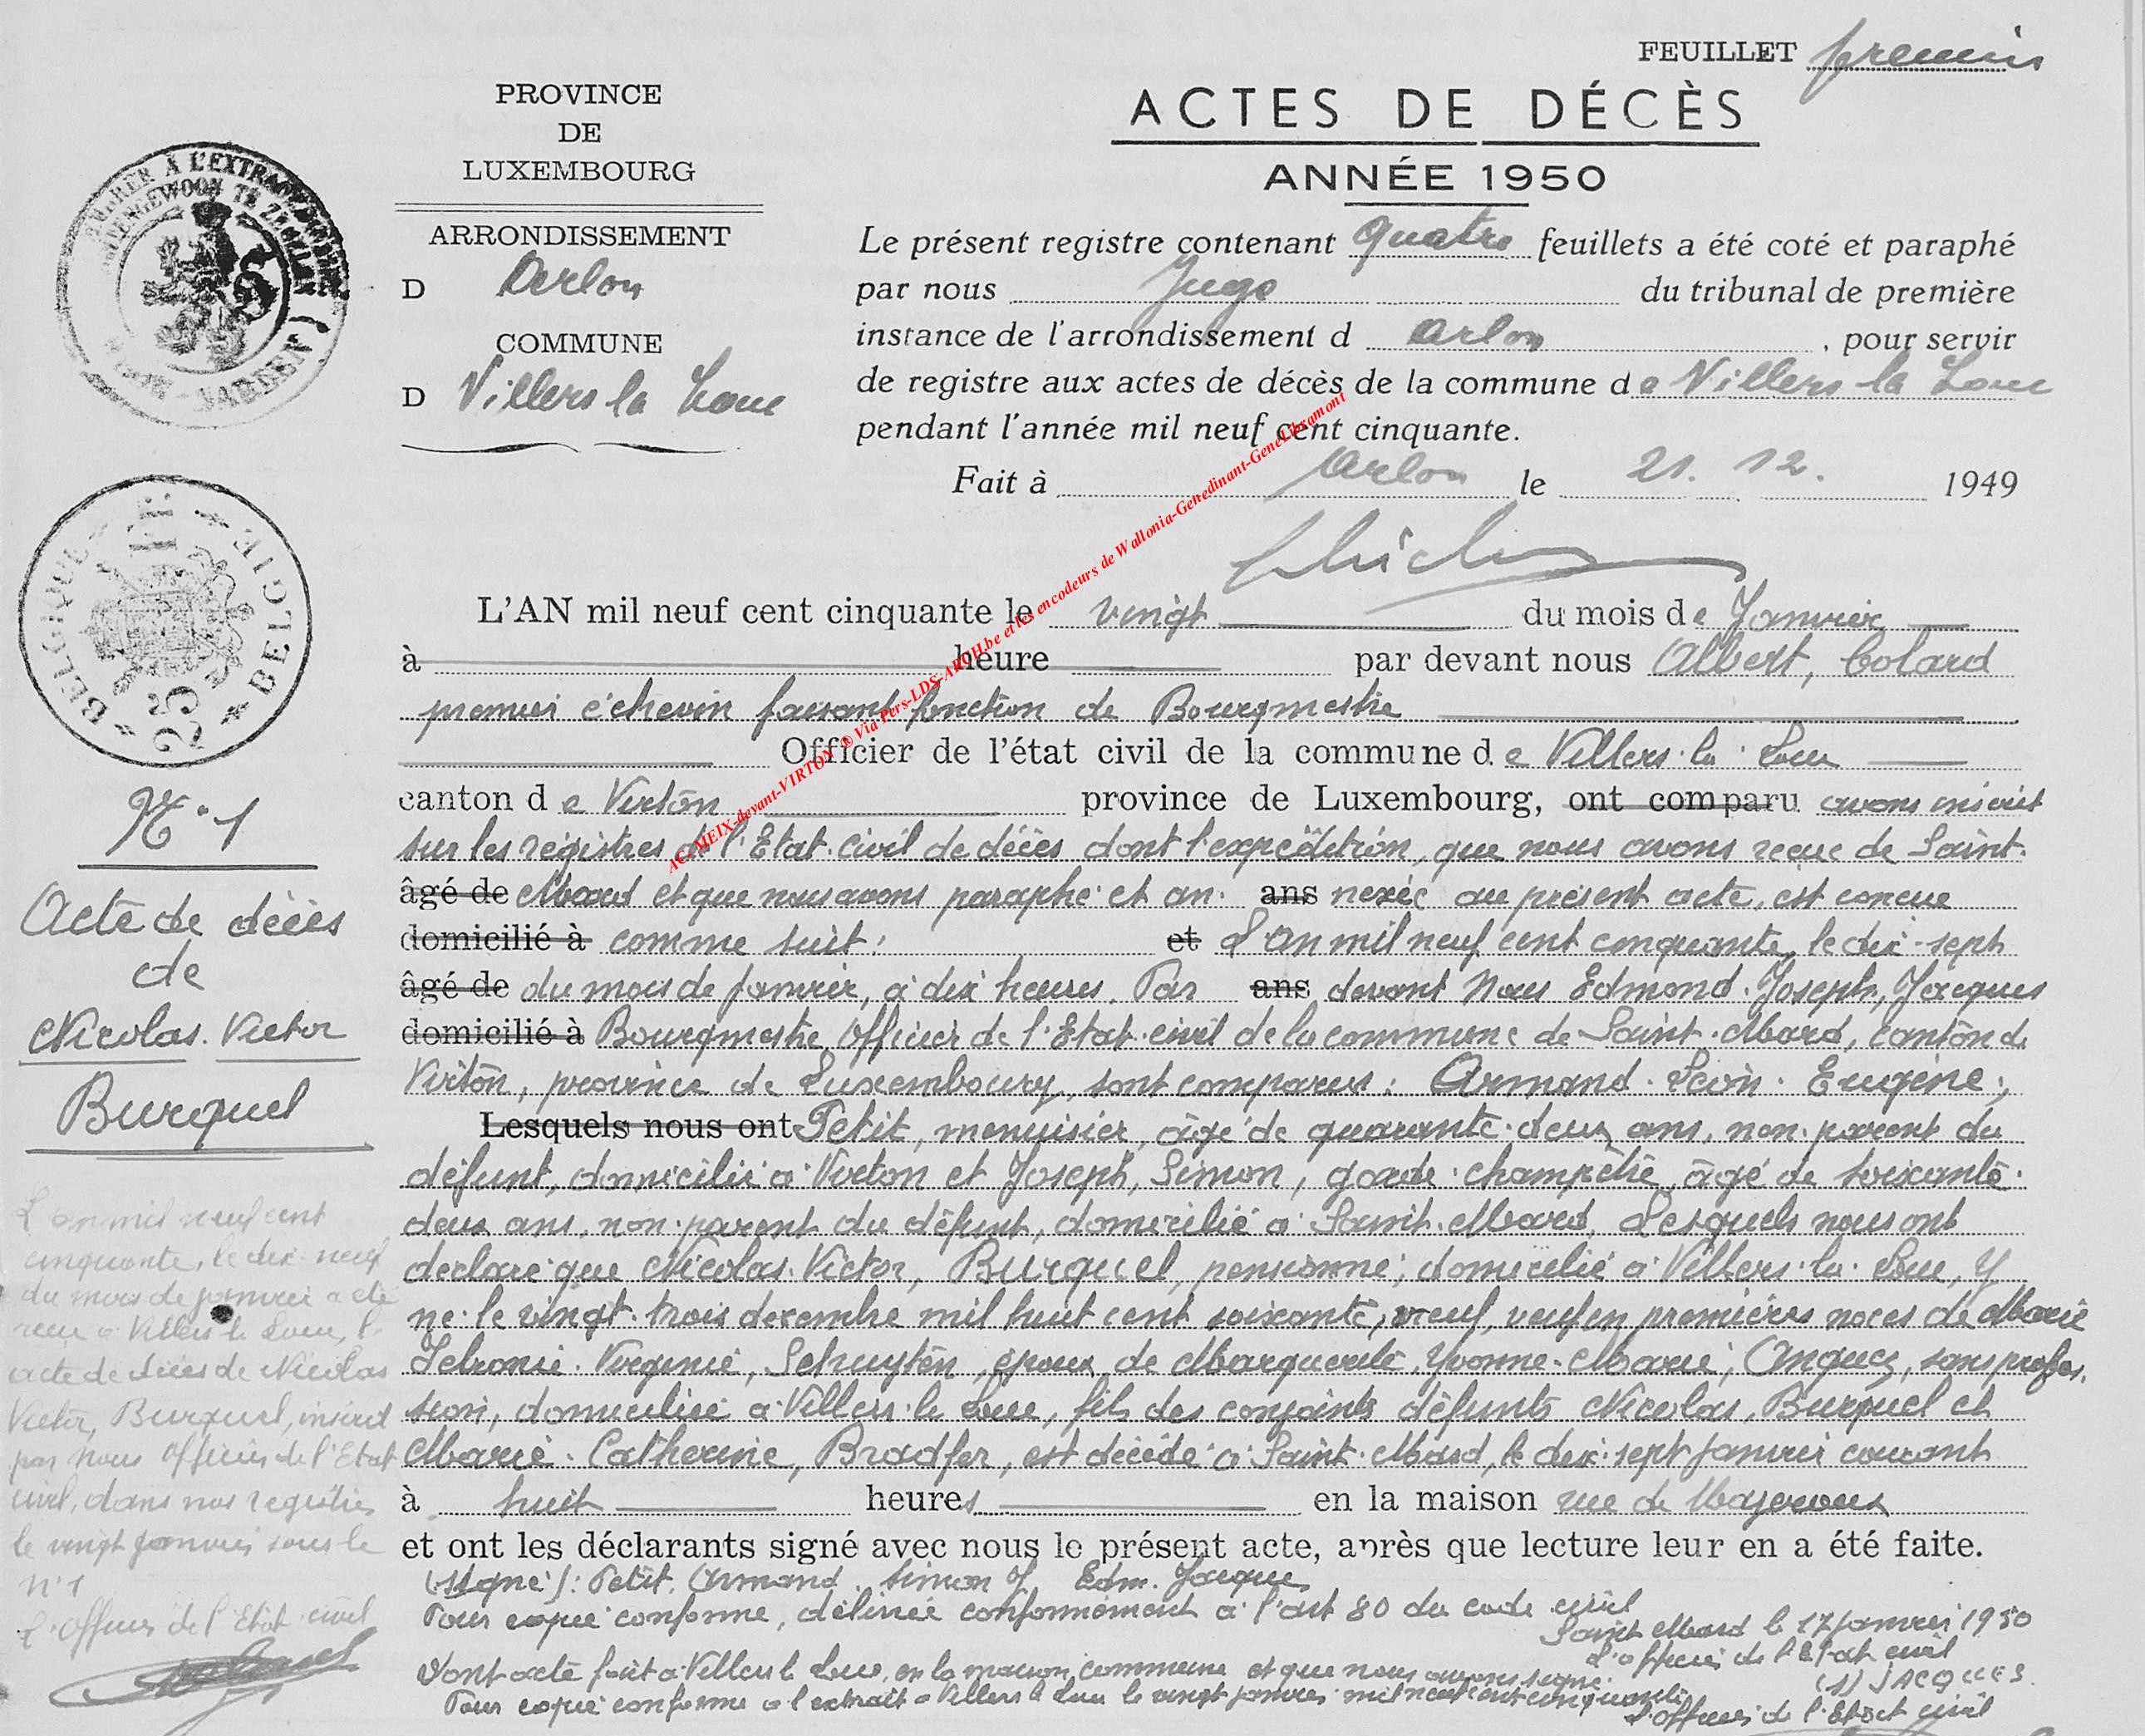 FEUILLET premier
PROVINCE
DE
LUXEMBOURG
ARRONDISSEMENT
D Arlon
COMMUNE
D Villers la Loue
ACTES DE DÉCÈS
ANNÉE 1950
Le présent registre contenant quatre feuillets a été coté et paraphé
par nous Juge du tribunal de première
instance de l'arrondissement d Arlon, pour servir
de registre aux actes de décès de la commune de Villers la Loue
pendant l'année mil neuf cent cinquante.
Fait à Arlon le 21. 12. 1949
BELGIQUE BELGIE
25
AC-MEIX-devant-VIRTON ® Via Pers-LDS-ARCH.be et les encodeurs de Wallonia-Genedinant-GeneLibramont
L'AN mil neuf cent cinquante le vingt du mois de Janvier
à heure par devant nous Albert, Colard
premier échevin faisant fonction de Bourgmestre
Officier de l'état civil de la commune de Villers-la-Loue
canton de Virton province de Luxembourg, ont comparu avons inscrit
sur les registres de l'Etat-civil de décès dont l'expédition, que nous avons reçue de Saint-
âgé de Mard et que nous avons paraphé et an- ans nexée au présent acte, est concue
domicilié à comme suit: et L'an mil neuf cent cinquante, le dix-sept
âgé de du mois de Janvier, à dix heures. Par ans devant Nous Edmond-Joseph, Jacques
domicilié à Bourgmestre Officier de l'Etat-civil de la commune de Saint-Mard, canton de
Virton, province de Luxembourg, sont comparus: Armand-Léon-Eugène,
Lesquels nous ont Petit, menuisier, âgé de quarante-deux ans, non-parent du
défunt, domicilié à Virton et Joseph, Simon, garde-champêtre, âgé de soixante-
deux ans, non-parent du défunt, domicilié à Saint-Mard, Lesquels nous ont
déclaré que Nicolas-Victor, Burquel, pensionné, domicilié à Villers-la-Loue, y
né le vingt-trois decembre mil huit cent soixante, veuf, veuf en premières noces de Marie
Virginie, Schuyten, époux de Marguerite, Yvonne-Marie, Anquez, sans profes-
sion, domiciliée à Villers-la-Loue, fils des conjoints défunts Nicolas, Burquel et
Marie-Catherine, Bradfer, est décédé à Saint-Mard, le dix-sept janvier courant
à huit heures en la maison rue de Majerou
et ont les déclarants signé avec nous le présent acte, après que lecture leur en a été faite.
(signé): Petit. Armand. Simon J Edm. Jacques
Pour copie conforme, délivrée conformément à l'art 80 du code civil
Saint Mard le 17 janvier 1950
L'officier de l'Etat civil
(s) JACQUES.
Dont acte fait à Villers la Loue, en la maison commune et que nous avons signé.
Pour copie conforme à l'extrait à Villers la Loue le vingt janvier mil neuf cent cinquante
L'officier de l'Etat civil
N° 1
Acte de décès
de
Nicolas-Victor
Burquel
L'an mil neuf cent
cinquante, le dix-neuf
du mois de janvier a été
reçu à Villers la Loue, l'
acte de décès de Nicolas
Victor, Burquel, inscrit
par nous Officier de l'Etat
civil, dans nos registres
le vingt janvier sous le
n° 1
L'Officier de l'Etat-civil